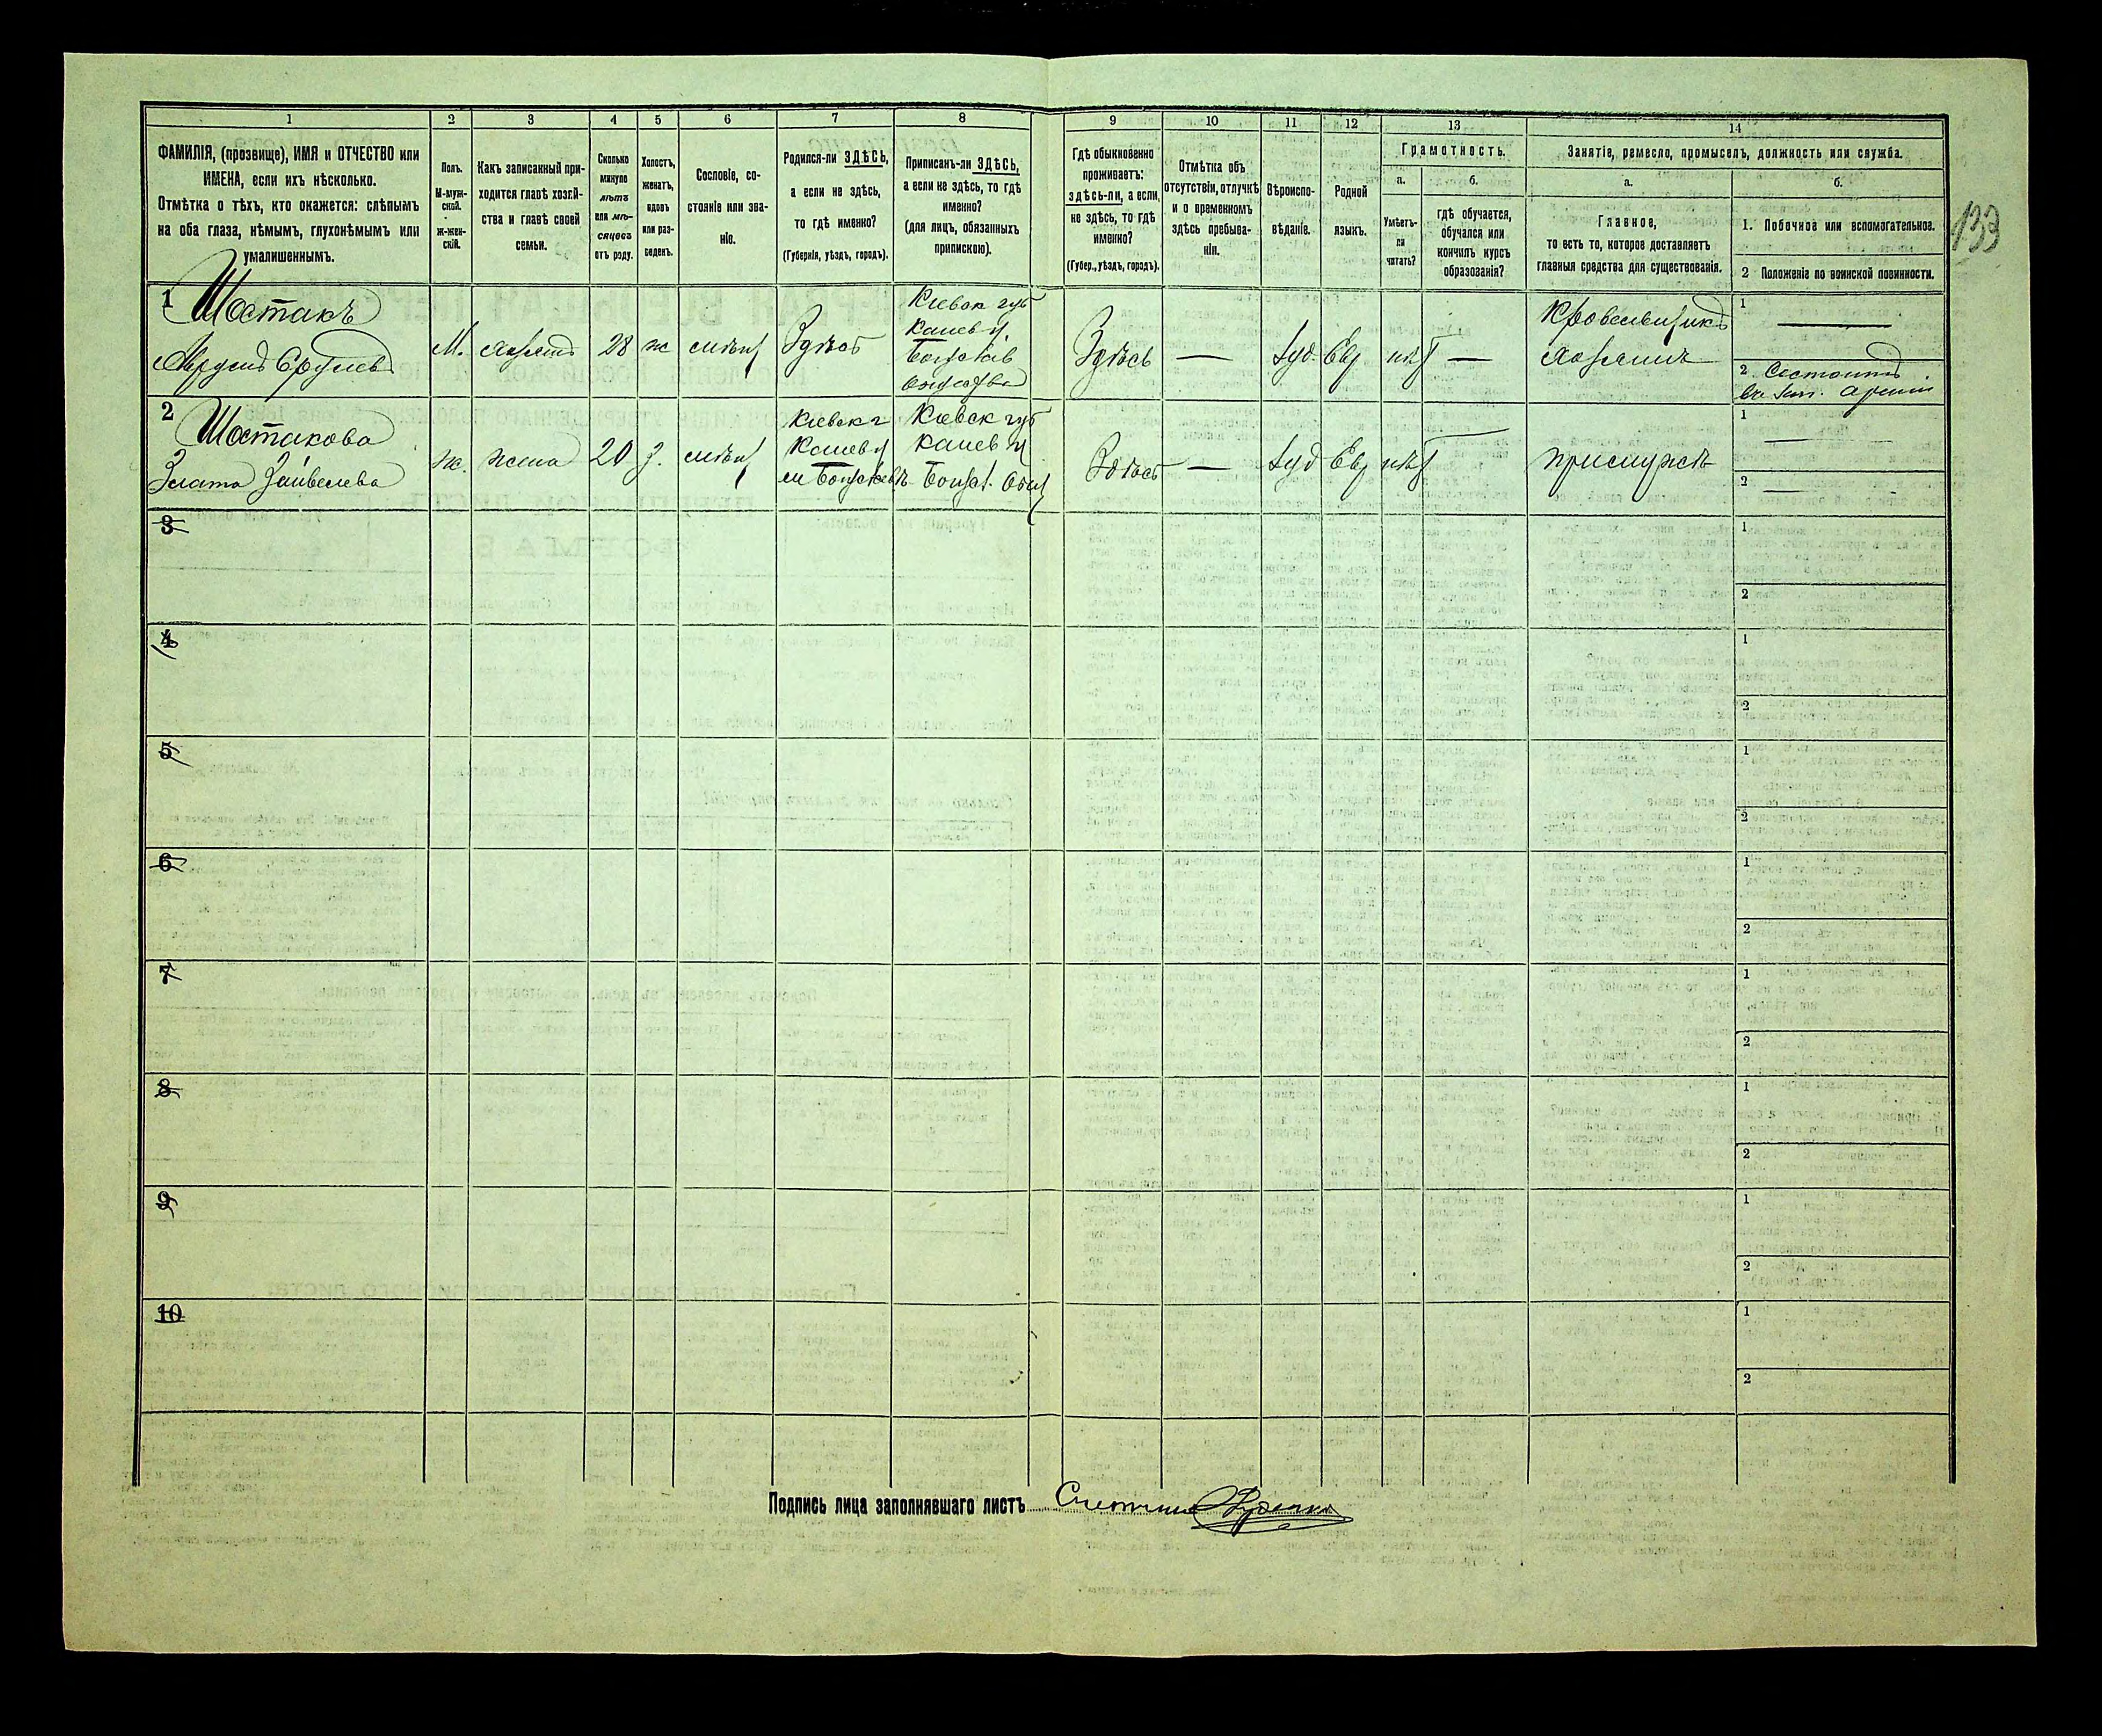 1 2 3 4 5 6 7 8 9 10 11 12 13 14
ФАМИЛІЯ, (прозвище), ИМЯ и ОТЧЕСТВО или
ИМЕНА, если ихъ нѣсколько.
Отмѣтка о тѣхъ, кто окажется: слѣпымъ
на оба глаза, нѣмымъ, глухонѣмымъ или
умалишеннымъ.
Полъ.
М-муж-
ской.
ж-жен-
скій.
Какъ записанный при-
ходится главѣ хозяй-
ства и главѣ своей
семьи.
Сколько
минуло
лѣтъ
или мѣ-
сяцевъ
отъ роду.
Холостъ,
женатъ,
вдовъ
или раз-
веденъ.
Сословіе, со-
стояніе или зва-
ніе.
Родился-ли ЗДѢСЬ,
а если не здѣсь,
то гдѣ именно?
(Губернія, уѣздъ, городъ).
Приписанъ-ли ЗДѢСЬ,
а если не здѣсь, то гдѣ
именно?
(для лицъ, обязанныхъ
припискою).
Гдѣ обыкновенно
проживаетъ:
здѣсь-ли, а если
не здѣсь, то гдѣ
именно?
(Губер., уѣздъ, городъ).
Отмѣтка объ
отсутствіи, отлучкѣ
и о временномъ
здѣсь пребыва-
ніи.
Вѣроиспо-
вѣданіе.
Родной
языкъ.
Грамотность.
а.
Умѣетъ-
ли
читать?
б.
гдѣ обучается,
обучался или
кончилъ курсъ
образованія?
Занятіе, ремесло, промыселъ, должность или служба.
а.
Главное,
то есть то, которое доставляетъ
главныя средства для существованія.
б.
1. Побочное или вспомогательное.
2 Положеніе по воинской повинности.
133
1 Шостакъ
М. 28 ж Здѣсь
Кіевск губ
Канев у
Здѣсь — Іуд. Евр нѣт —
Кровельщикъ
хозяинъ
1 —
2. Состоитъ
въ Зап. Арміи
2 Шостакова
Злата
ж. жена 20 З.
Кіевск г
Канев у
Кіевск губ
Канев у
Здѣсь — Іуд Евр нѣт
1 —
2 —
3 1
2
4 1
2
5 1
2
6 1
2
7 1
2
8 1
2
9 1
2
10 1
2
Подпись лица заполнявшаго листъ